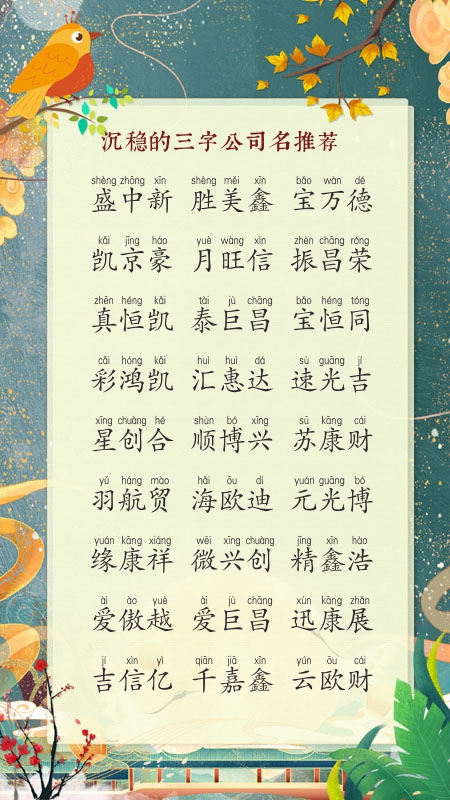 沉稳的三字公司名推荐
shèng zhōng xīn shèng měi xīn bǎo wàn dé
盛中新 胜美鑫 宝万德
kǎi jīng háo yuè wàng xìn zhèn chāng róng
凯京豪 月旺信 振昌荣
zhēn héng kǎi tài jù chāng bǎo héng tóng
真恒凯 泰巨昌 宝恒同
cǎi hóng kǎi huì huì dá sù guāng jí
彩鸿凯 汇惠达 速光吉
xīng chuàng hé shùn bó xīng sū kāng cái
星创合 顺博兴 苏康财
yǔ háng mào hǎi ōu dí yuán guāng bó
羽航贸 海欧迪 元光博
yuán kāng xiáng wēi xīng chuàng jīng xīn hào
缘康祥 微兴创 精鑫浩
ài ào yuè ài jù chāng xùn kāng zhǎn
爱傲越 爱巨昌 迅康展
jí xìn yì qiān jiā xīn yún ōu cái
吉信亿 千嘉鑫 云欧财